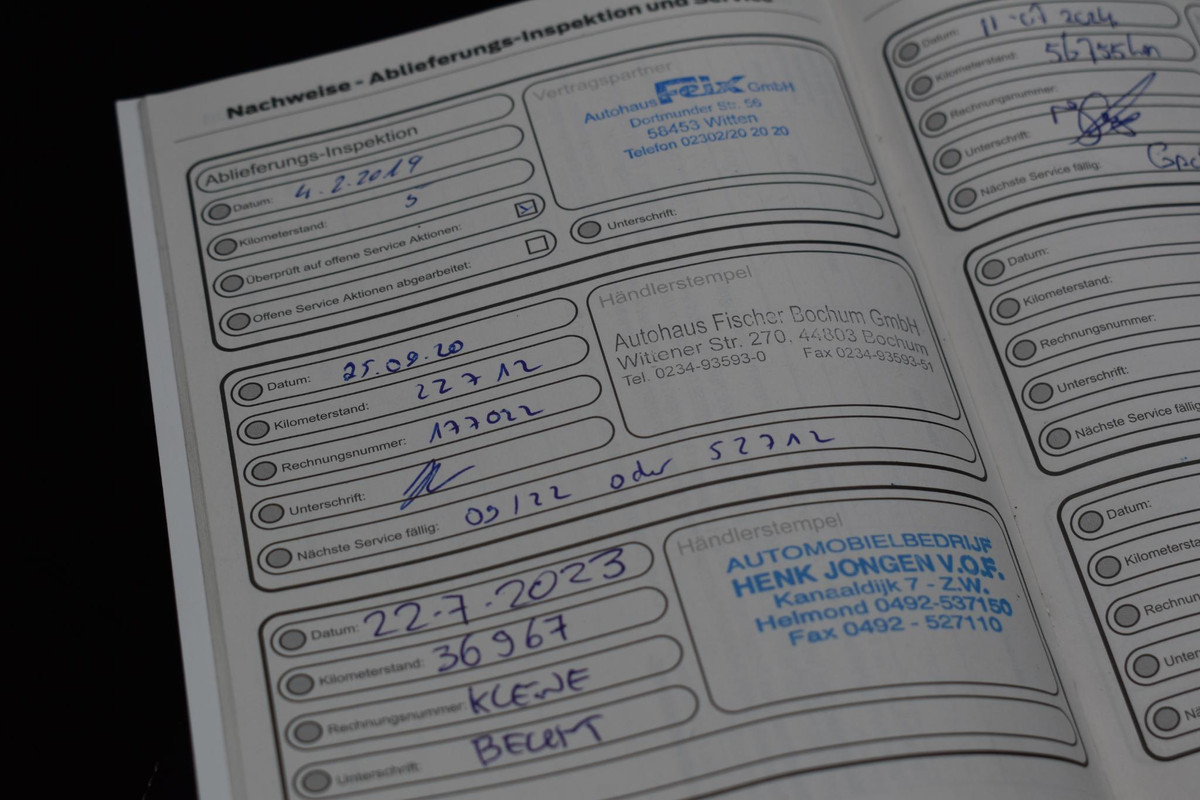 Nachweise - Ablieferungs-Inspektion und Service
Ablieferungs-Inspektion
Datum: 4.2.2019
Kilometerstand: 5
Überprüft auf offene Service Aktionen:
Offene Service Aktionen abgearbeitet:
Vertragspartner
Autohaus Feix GmbH
Dortmunder Str. 56
58453 Witten
Telefon 02302/20 20 20
Unterschrift:
Datum: 25.09.20
Kilometerstand: 22712
Rechnungsnummer: 177022
Unterschrift:
Nächste Service fällig: 09/22 oder 52712
Händlerstempel
Autohaus Fischer Bochum GmbH
Wittener Str. 270, 44803 Bochum
Tel. 0234-93593-0 Fax 0234-93593-61
Datum: 22-7-2023
Kilometerstand: 36967
Rechnungsnummer: KLEINE
Unterschrift: BEURT
Händlerstempel
AUTOMOBIELBEDRIJF
HENK JONGEN V.O.F.
Kanaaldijk 7 - Z.W.
Helmond 0492-537150
Fax 0492 - 527110
Datum: 11 07 2024
Kilometerstand: 56755km
Rechnungsnummer:
Unterschrift:
Nächste Service fällig:
Datum:
Kilometerstand:
Rechnungsnummer:
Unterschrift:
Nächste Service fällig:
Datum:
Kilometersta
Rechnun
Unter
Nä